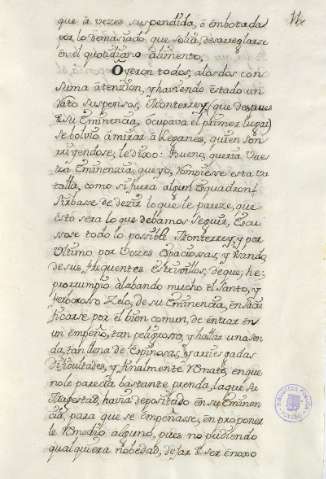 que à vezes suspendida, ò embotada
por lo demasiado que solia, desarreglarse
en el quotidiano alimento,
Oyeron todos, a los dos con
suma atenzion, y haviendo estado un
rato suspensos, Monterrey (que despues
de su Eminenzia, ocupava el primer lugar)
se bolvio à mirar à Leganes, quien son
rriyendose, le dixo: Bueno, queria Vues
tra Eminenzia, que yo, rompiesse esta mu
ralla, como si fuera algun Esquadron?
Sirbase de dezir lo que le pareze, que
esto sera lo que debamos seguir, Escu
sose todo lo posible Monterrey, y por
ultimo por vozes espaciosas, y usando
de sus, frequentes estrivillos, de que, he,
prorrumpio alabando mucho el santo, y
fervoroso zelo, de su Eminenzia, en sacri
ficarse por el bien comun, de entrar en
un empeño, tan peligroso, y hallar una sen
da, tan llena de Espinosas, y arriesgadas
dificultades, y finalmente rematò, en que
no le parecia bastante prenda, la que su
Magestad, havia depositado en su Eminen
cia, para que se empeñasse, en proponer
le remedio alguno, pues no pudiendo
qualquiera nobedad, dejar de ser en oxo